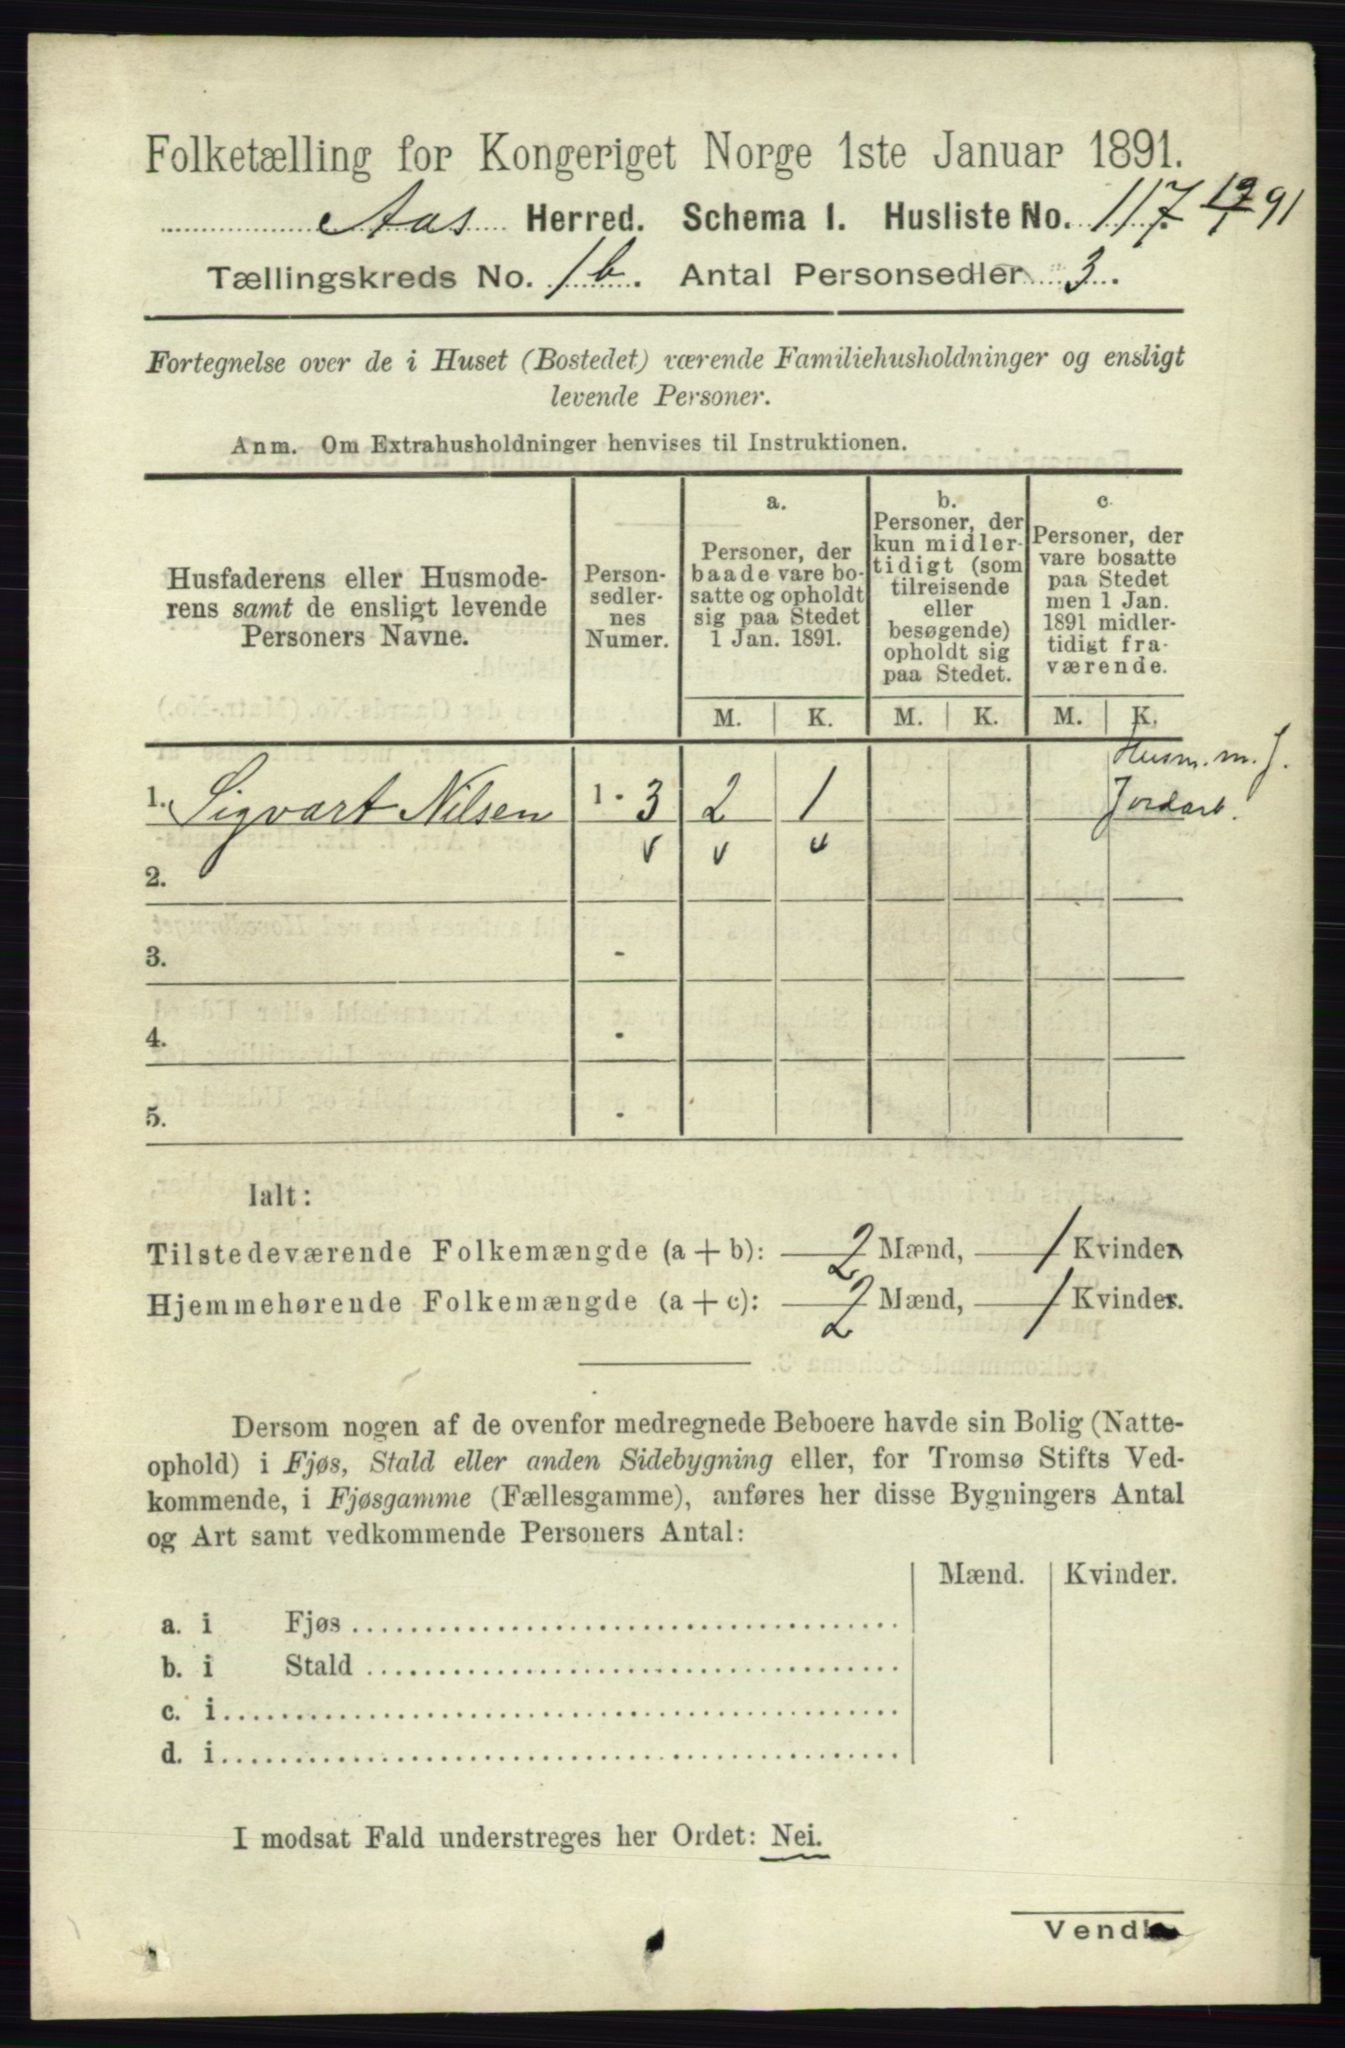 Folketælling for Kongeriget Norge 1ste Januar 1891.
Aas Herred. Schema 1. Husliste No. 117 91
Tællingskreds No. 1b. Antal Personsedler 3.
Fortegnelse over de i Huset (Bostedet) værende Familiehusholdninger og ensligt
levende Personer.
Anm. Om Extrahusholdninger henvises til Instruktionen.
Husfaderens eller Husmode-
rens samt de ensligt levende
Personers Navne.
Person-
sedler-
nes
Numer.
a.
Personer, der
baade vare bo-
satte og opholdt
sig paa Stedet
1 Jan. 1891.
b.
Personer, der
kun midler-
tidigt (som
tilreisende
eller
besøgende)
opholdt sig
paa Stedet.
c
Personer, der
vare bosatte
paa Stedet
men 1 Jan.
1891 midler-
tidigt fra-
værende.
M. K. M. K. M. K.
Husm. m. J.
1. Sigvart Nilsen 1 - 3 2 1 Jordarb.
2.
3. -
4. -
5. -
Ialt:
Tilstedeværende Folkemængde (a + b): 2 Mænd, 1 Kvinder.
Hjemmehørende Folkemængde (a + c): 2 Mænd, 1 Kvinder.
Dersom nogen af de ovenfor medregnede Beboere havde sin Bolig (Natte-
ophold) i Fjøs, Stald eller anden Sidebygning eller, for Tromsø Stifts Ved-
kommende, i Fjøsgamme (Fællesgamme), anføres her disse Bygningers Antal
og Art samt vedkommende Personers Antal:
Mænd. Kvinder.
a. i Fjøs
b. i Stald
c. i
d. i
I modsat Fald understreges her Ordet: Nei.